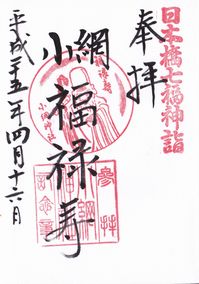 日本橋七福神詣
奉拝
小網
福禄寿
平成二十五年四月十六日
小網神社
参拝